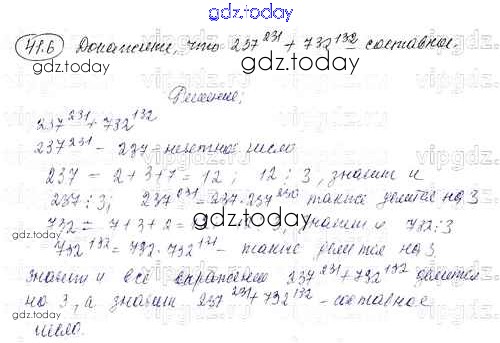 gdz.today
41.6 Докажите, что 237^231 + 732^132 составное.
gdz.today
Решение:
237^231 + 732^132
237^231 - 237 - нечетное число
237 = 2+3+7 = 12; 12 : 3, значит и
237 : 3; 237^231 = 237 · 237^230 также делится на 3
732 = 7+3+2 = значит и 732 : 3
732^132 = 732 · 732^131 - также делится на 3,
значит и все выражение 237^231 + 732^132 делится
на 3, а значит 237^231 + 732^132 - составное
число.
gdz.today
gdz.today
vipgdz